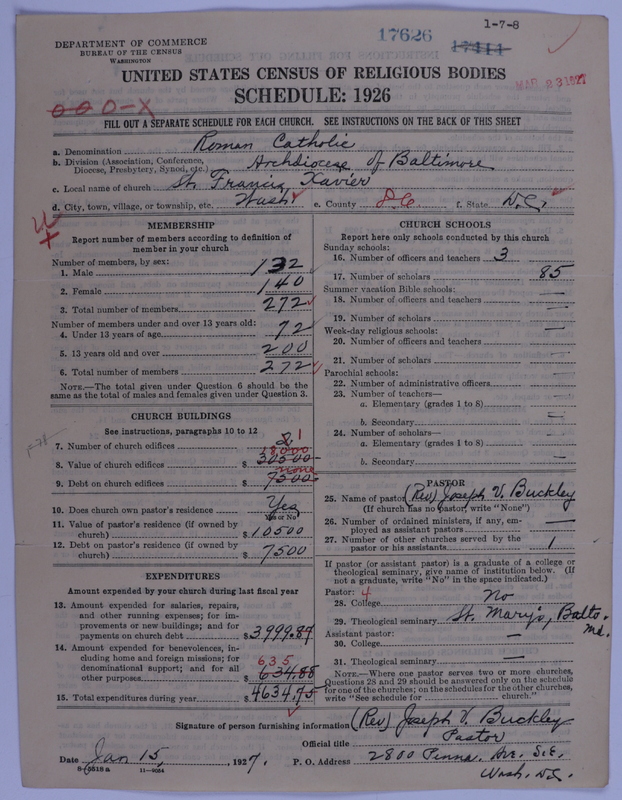 1-7-8
17626
17411
DEPARTMENT OF COMMERCE
BUREAU OF THE CENSUS
WASHINGTON
UNITED STATES CENSUS OF RELIGIOUS BODIES
MAR 23 1927
SCHEDULE: 1926
000-X
FILL OUT A SEPARATE SCHEDULE FOR EACH CHURCH. SEE INSTRUCTIONS ON THE BACK OF THIS SHEET
a. Denomination Roman Catholic
b. Division (Association, Conference, Diocese, Presbytery, Synod, etc.) Archdiocese of Baltimore
c. Local name of church St. Francis Xavier
d. City, town, village, or township, etc. Wash. e. County D.C. f. State D.C.
MEMBERSHIP
Report number of members according to definition of
member in your church
Number of members, by sex:
1. Male 132
2. Female 140
3. Total number of members 272
Number of members under and over 13 years old:
4. Under 13 years of age 72
5. 13 years old and over 200
6. Total number of members 272
NOTE.—The total given under Question 6 should be the
same as the total of males and females given under Question 3.
CHURCH BUILDINGS
See instructions, paragraphs 10 to 12
7. Number of church edifices 2 1
8. Value of church edifices $ 30500
9. Debt on church edifices $ 7500 none
10. Does church own pastor's residence Yes
Yes or No
11. Value of pastor's residence (if owned by
church) $ 10500
12. Debt on pastor's residence (if owned by
church) $ 7500
EXPENDITURES
Amount expended by your church during last fiscal year
13. Amount expended for salaries, repairs,
and other running expenses; for im-
provements or new buildings; and for
payments on church debt $ 3999.87
14. Amount expended for benevolences, in-
cluding home and foreign missions; for
denominational support; and for all
other purposes $ 634.88
635
15. Total expenditures during year $ 4634.75
CHURCH SCHOOLS
Report here only schools conducted by this church
Sunday schools:
16. Number of officers and teachers 3
17. Number of scholars 85
Summer vacation Bible schools:
18. Number of officers and teachers —
19. Number of scholars —
Week-day religious schools:
20. Number of officers and teachers —
21. Number of scholars —
Parochial schools:
22. Number of administrative officers —
23. Number of teachers—
a. Elementary (grades 1 to 8) —
b. Secondary —
24. Number of scholars—
a. Elementary (grades 1 to 8) —
b. Secondary —
PASTOR
25. Name of pastor (Rev) Joseph V. Buckley
(If church has no pastor, write "None")
26. Number of ordained ministers, if any, em-
ployed as assistant pastors —
27. Number of other churches served by the
pastor or his assistants 1
If pastor (or assistant pastor) is a graduate of a college or
theological seminary, give name of institution below. (If
not a graduate, write "No" in the space indicated.)
Pastor: 4
28. College No
29. Theological seminary St. Mary's, Balto. Md.
Assistant pastor:
30. College —
31. Theological seminary —
NOTE.—Where one pastor serves two or more churches,
Questions 28 and 29 should be answered only on the schedule
for one of the churches; on the schedules for the other churches,
write "See schedule for ______ church."
Signature of person furnishing information (Rev) Joseph V. Buckley
Official title Pastor
Date Jan 15, 1927. P. O. Address 2800 Penna. Ave. S.E.
Wash. D.C.
8-5518a 11-9054